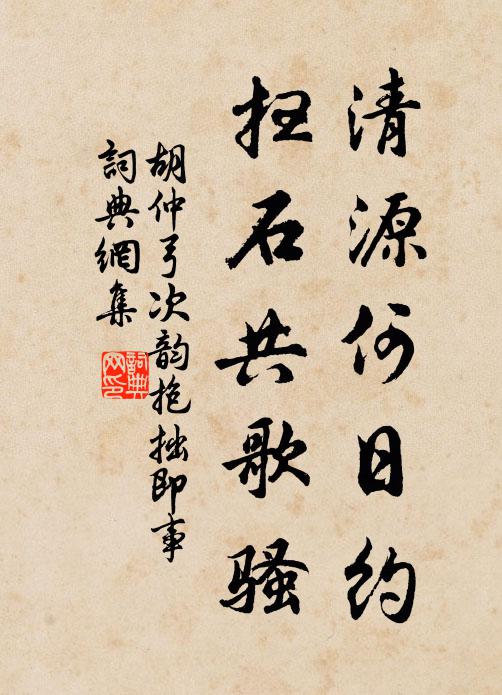 清源何日約
扫石共歌骚
胡仲弓次韵抱拙即事
詞典網集
詞典网印